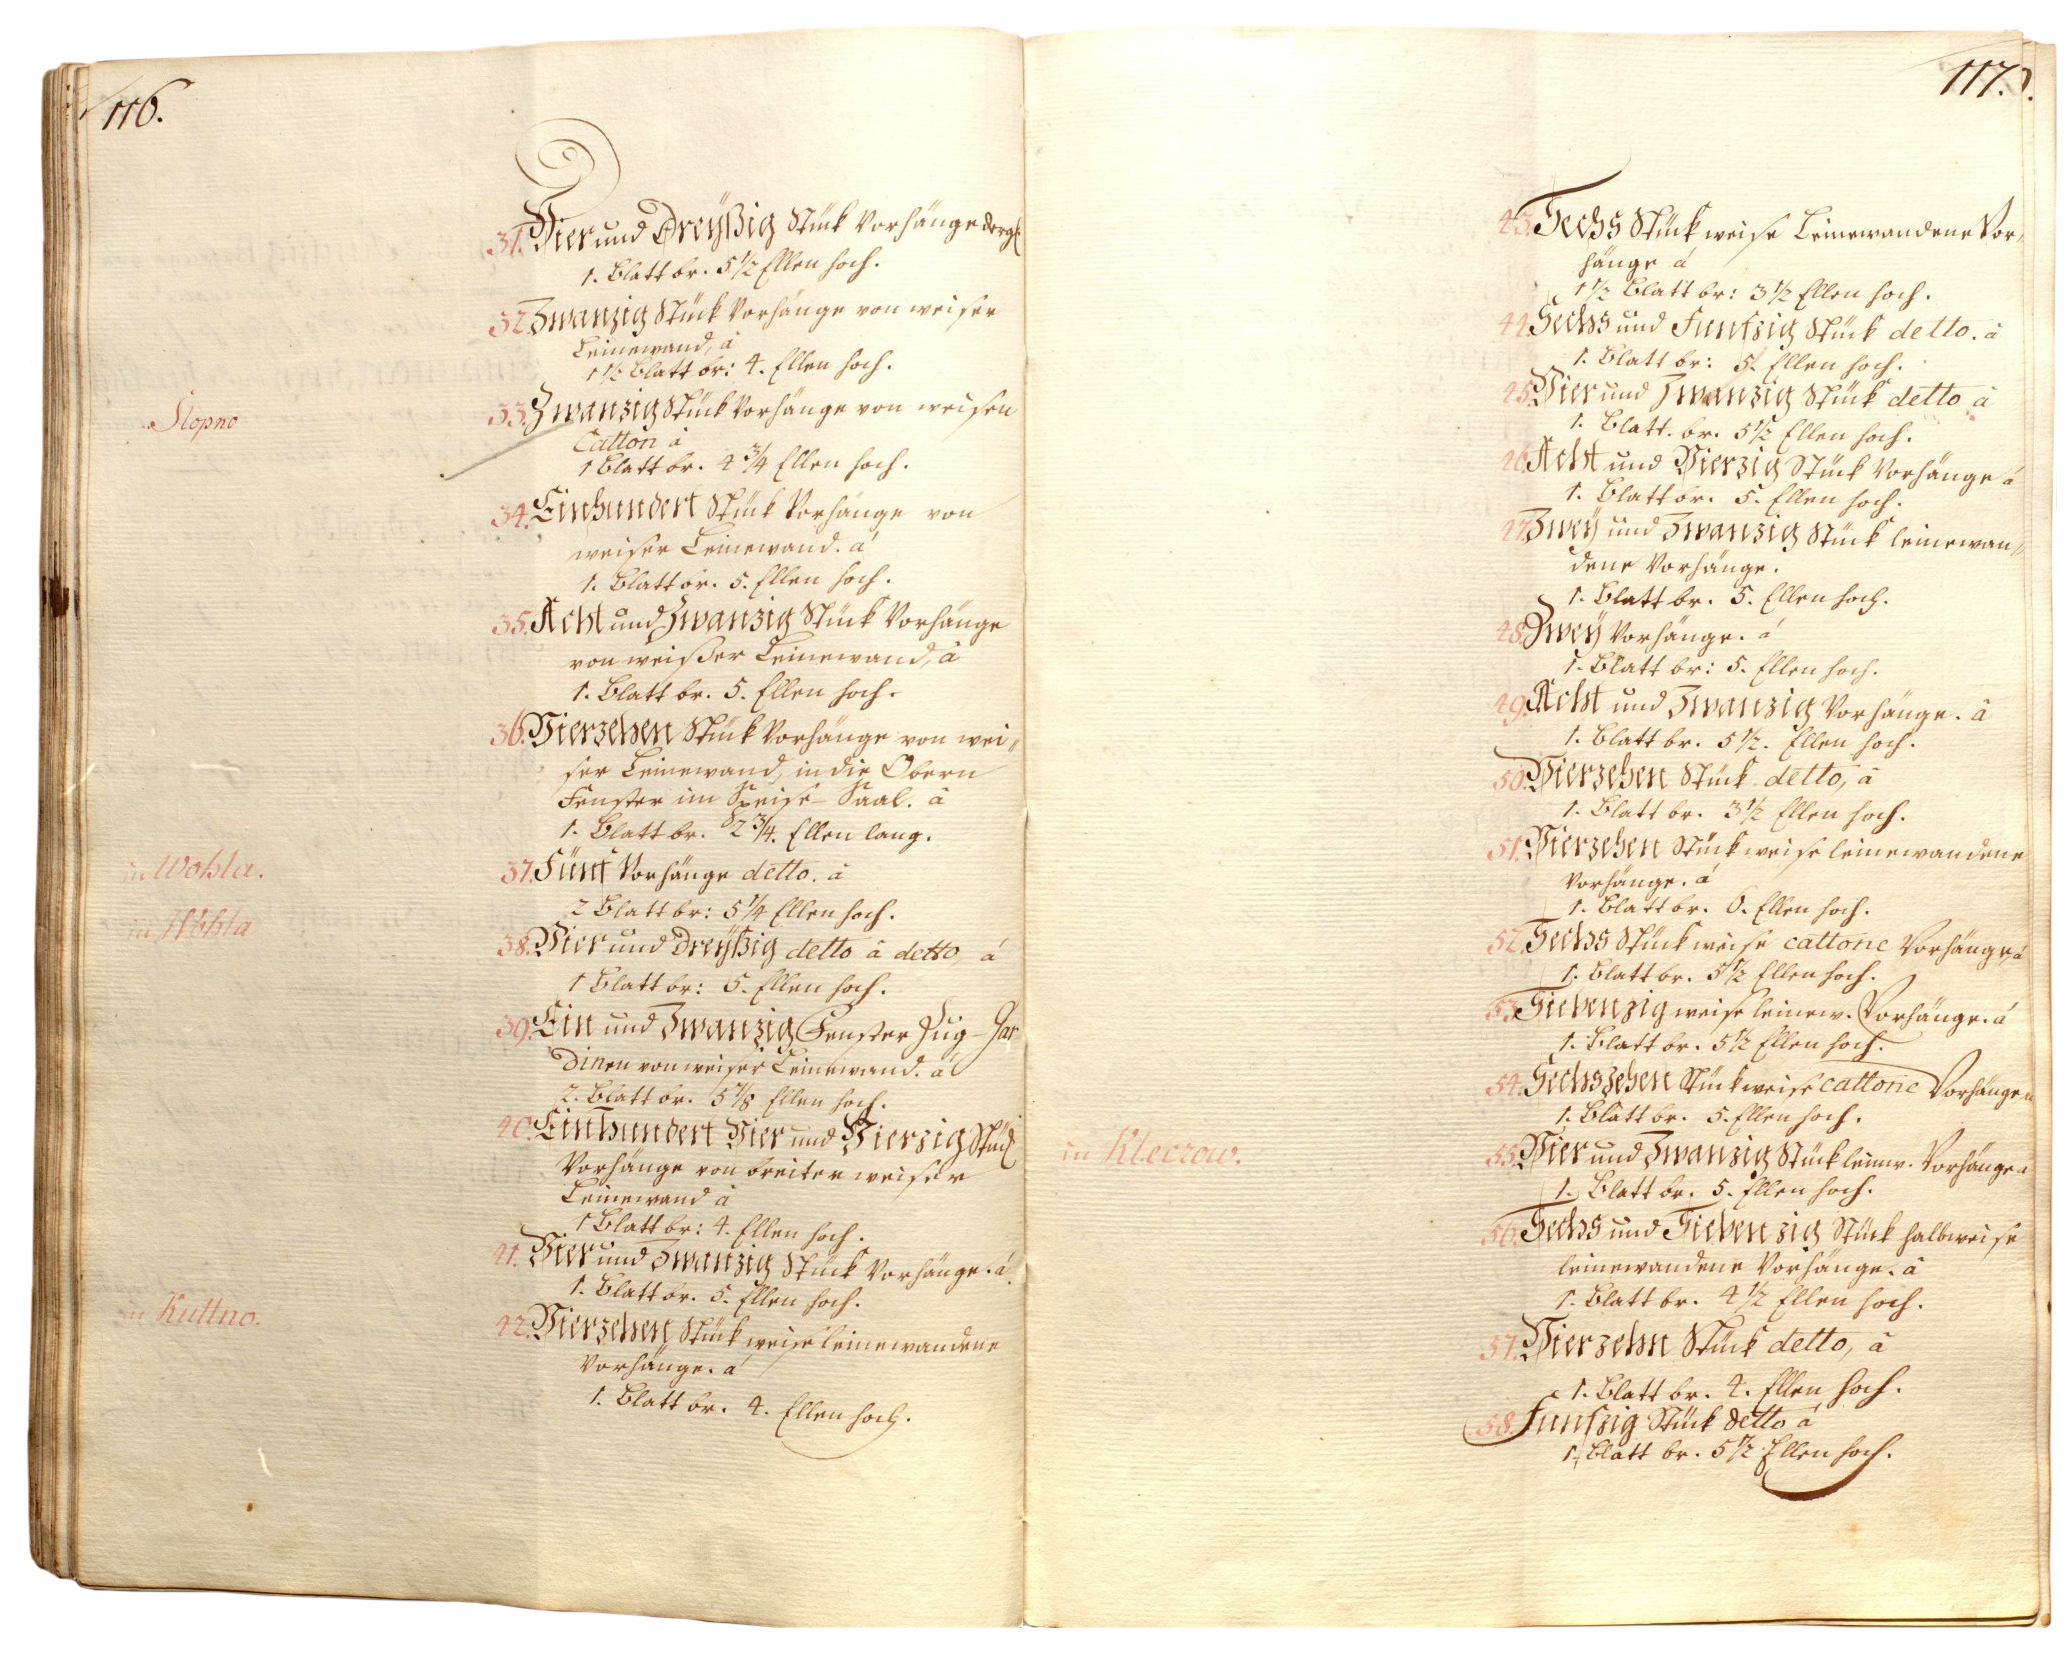 116.
31. Vier und Dreyßig Stük Vorhänge dergl.
1. Blatt br. 5 1/2 Ellen hoch.
32. Zwanzig Stück Vorhänge von weiser
Leinewand, à
1 1/2 Blatt br: 4. Ellen hoch.
Slopno
33. Zwanzig Stück Vorhänge von weisen
Catton à
1 Blatt br. 4 3/4 Ellen hoch.
34. Einhundert Stük Vorhänge von
weiser Leinewand. à
1. Blatt br. 5. Ellen hoch.
35. Acht und Zwanzig Stück Vorhänge
von weißer Leinewand, à
1. Blatt br. 5. Ellen hoch.
36. Vierzehen Stück Vorhänge von wei„
ser Leinewand, in die Obern
Fenster im Speise-Saal. à
1. Blatt br. 2 3/4. Ellen lang.
in Wohla.
37. Fünf Vorhänge detto. à
2 Blatt br: 5 1/4 Ellen hoch.
in Wohla
38. Vier und Dreyßig detto à detto, à
1 Blatt br: 5. Ellen hoch.
39. Ein und Zwanzig Fenster Zug-Gar
dinen von weiser Leinewand. à
2. Blatt br. 5 7/8 Ellen hoch.
40. Einhundert Vier und Vierzig Stück
Vorhänge von breiter weiser
Leinewand à
1 Blatt br: 4. Ellen hoch.
41. Vier und Zwanzig Stück Vorhänge. à
1. Blatt br. 5. Ellen hoch.
in Kuttno.
42. Vierzehen Stück weise leinewandene
Vorhänge. à
1. Blatt br. 4. Ellen hoch.
117.
43. Sechs Stück weise Leinewandene Vor„
hänge à
1 1/2 Blatt br: 3 1/2 Ellen hoch.
44. Sechs und Funfzig Stück detto. à
1. Blatt br: 5. Ellen hoch.
45. Vier und Zwanzig Stück detto à
1. Blatt. br. 5 1/2 Ellen hoch.
46. Acht und Vierzig Stück Vorhänge à
1. Blatt br. 5. Ellen hoch.
47. Zwey und Zwanzig Stück leinewan„
dene Vorhänge.
1. Blatt br. 5. Ellen hoch.
48. Zwey Vorhänge. à
1. Blatt br: 5. Ellen hoch.
49. Acht und Zwanzig Vorhänge. à
1. Blatt br. 5 1/2. Ellen hoch.
50. Vierzehen Stück detto, à
1. Blatt br. 3 1/2 Ellen hoch.
51. Vierzehen Stück weise leinewandene
Vorhänge. à
1. Blatt br. 6. Ellen hoch.
52. Sechs Stück weise cattone Vorhänge, à
1. Blatt br. 5 1/2 Ellen hoch.
53. Siebenzig weise leinew. Vorhänge. à
1. Blatt br. 5 1/2 Ellen hoch.
54. Sechszehen Stück weise cattone Vorhänge à
1. Blatt br. 5. Ellen hoch.
in Klecrow.
55. Vier und Zwanzig Stück leinw. Vorhänge à
1. Blatt br. 5. Ellen hoch.
56. Sechs und Siebenzig Stück halbweise
leinewandene Vorhänge. à
1. Blatt br. 4 1/2 Ellen hoch.
57. Vierzehn Stück detto, à
1. Blatt br. 4. Ellen hoch.
58. Funfzig Stück detto à
1. Blatt br. 5 1/2 Ellen hoch.